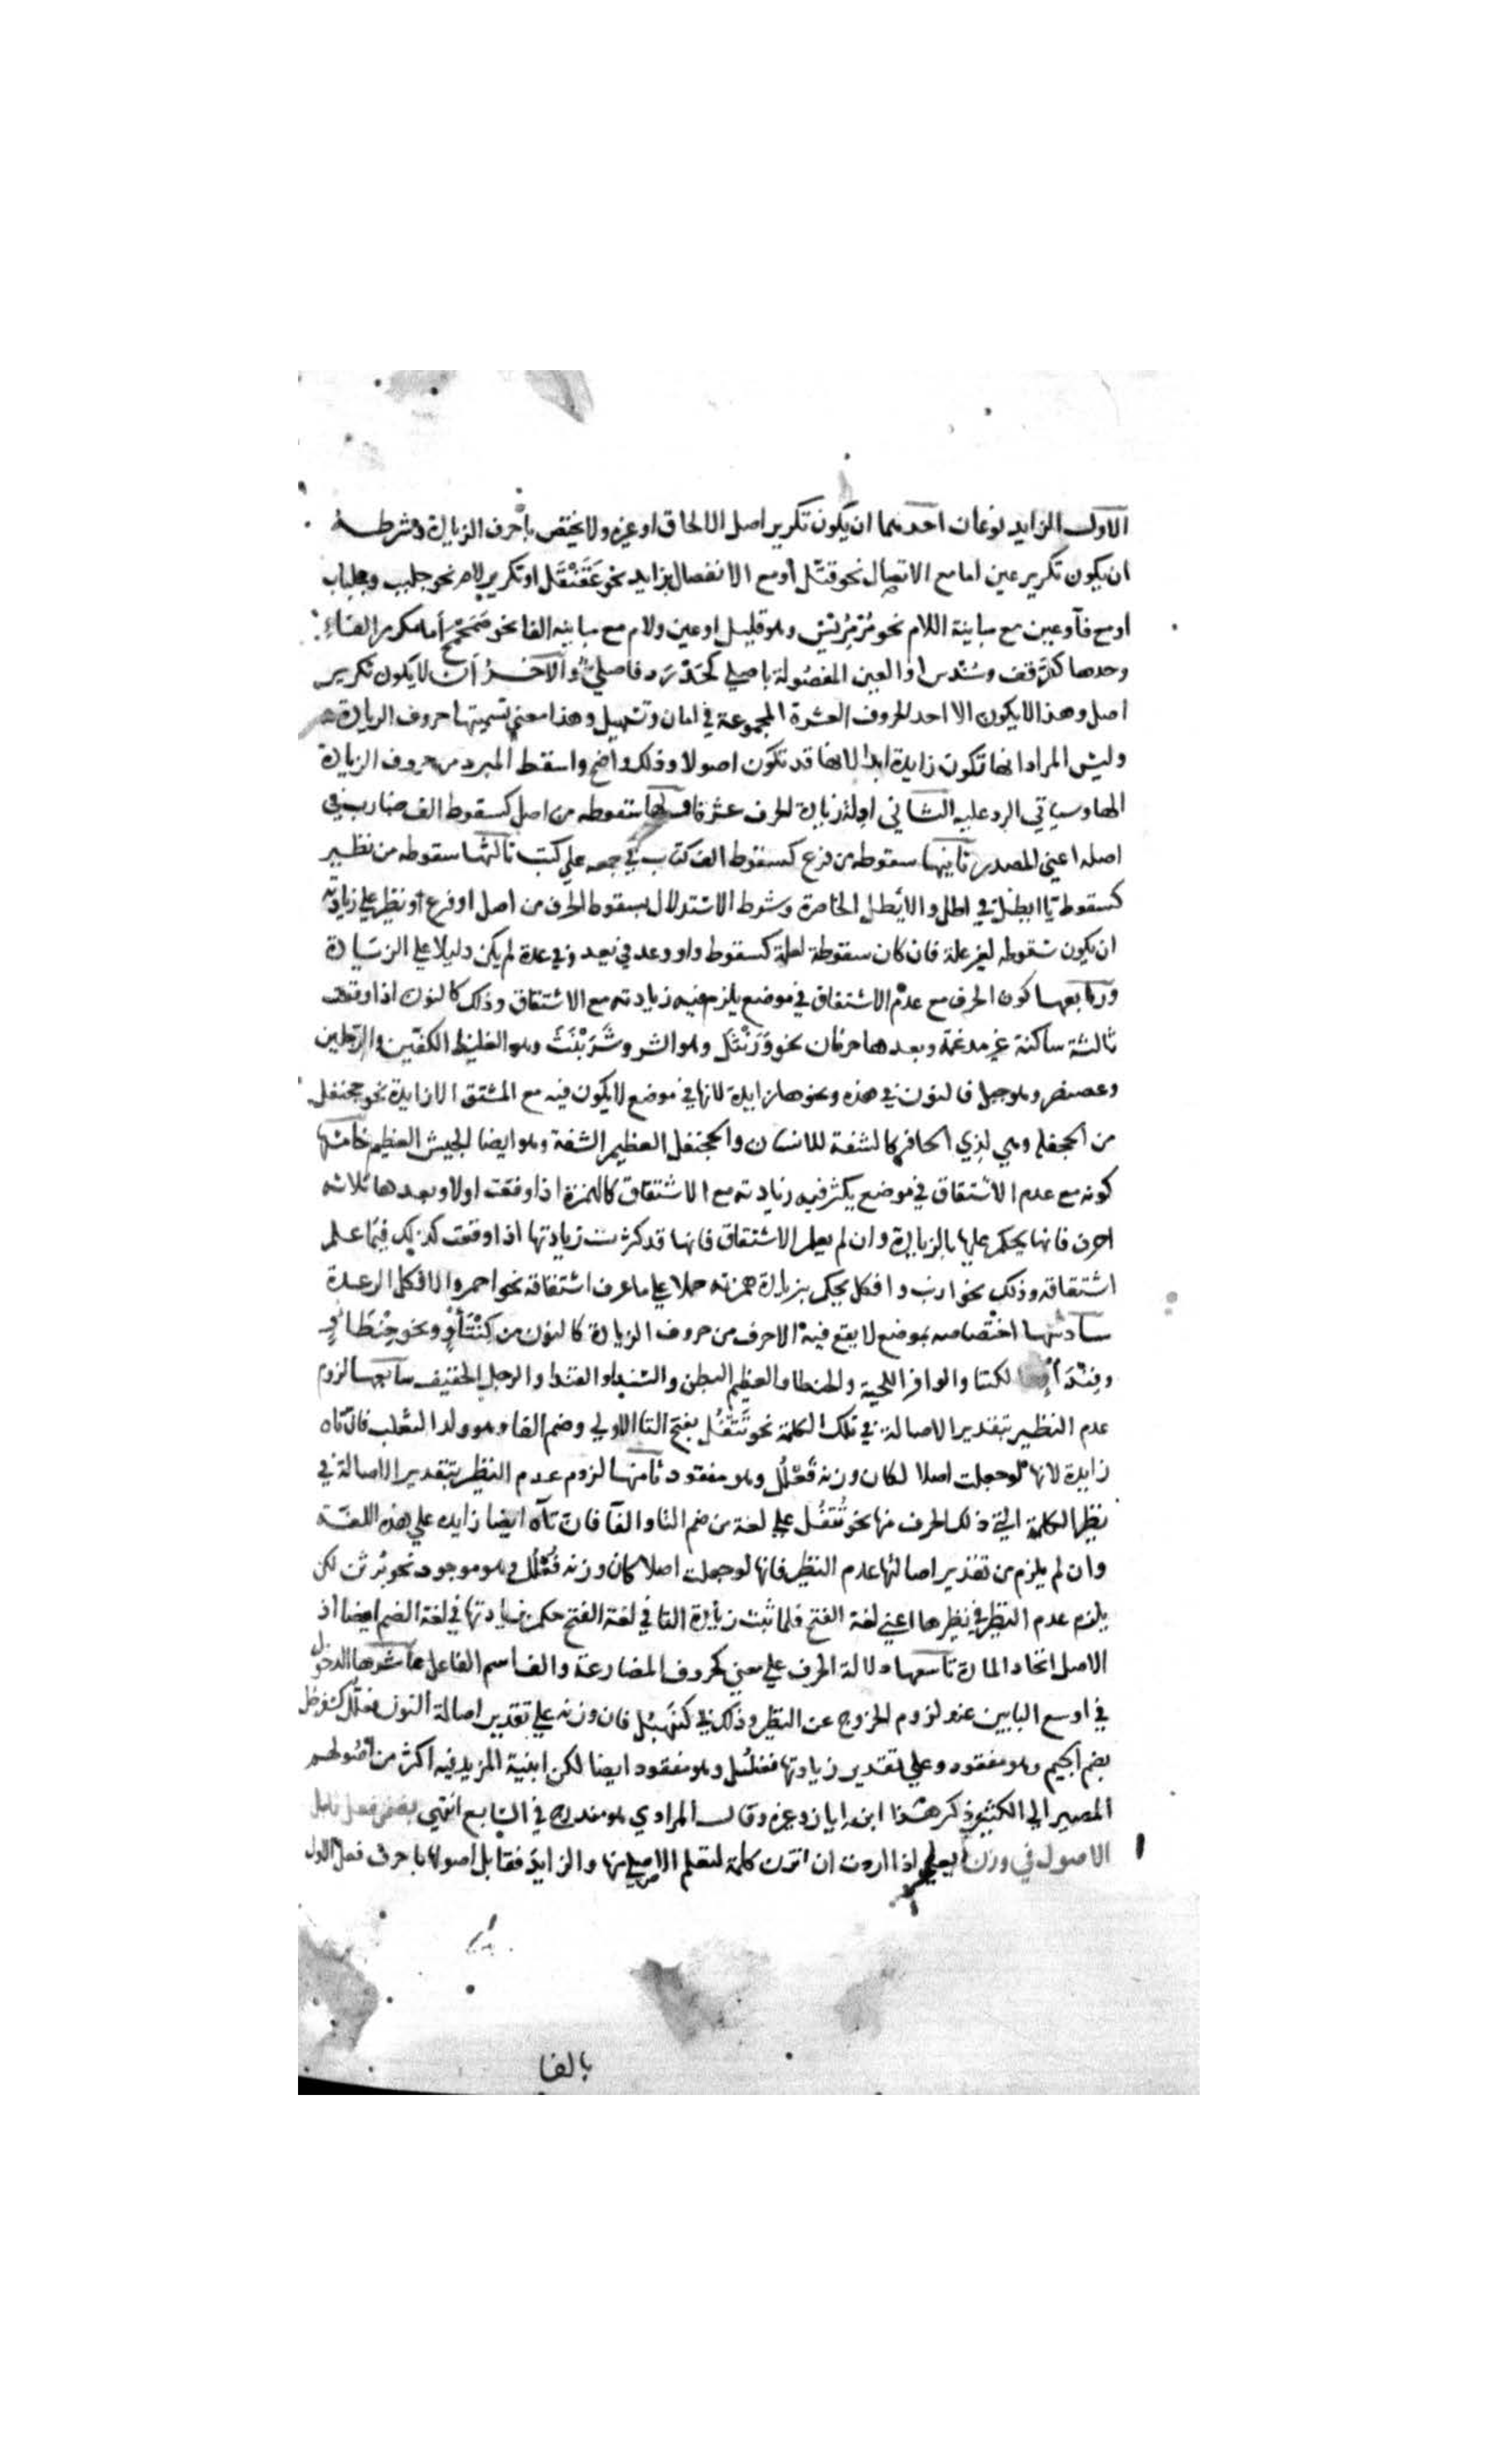 الاول الزايد نوعان احدهما ان يكون تكرير اصل لالحاق او غيره ولا يختص باحرف الزيادة وشرطه
ان يكون تكرير عين اما مع الاتصال نحو قتّل او مع الانفصال بزايد نحو عَقَنْقَل او تكرير لام نحو جلبب وجلباب
او مع فآ وعين مع مباينة اللام نحو مَرْمَرِيْس وهو قليل او عين ولام مع مباينه الفا نحو صَمَحْمَح أما مكرر الفاء
وحدها كقرقف وسُنْدس او العين المفصُولة باصلي كحَدْرَد فاصلي والآخرُ أن لا يكون تكرير
اصل وهذا لا يكون الا احد الحروف العشرة المجموعة في امان وتسهيل وهذا معني تسميتها حروف الزيادة
وليس المراد انها تكون زايدة ابدا لانها قد تكون اصولا وذلك واضح واسقط المبرد من حروف الزيادة
الها وسياتي الرد عليه الثاني ادلة زيادة الحرف عشرة اولها سقوطه من اصل كسقوط الف ضارب في
اصله اعني المصدر ثانيها سقوطه من فرع كسقوط الف كتاب في جمعه علي كتب ثالثها سقوطه من نظير
كسقوط يا ايطل في اطل والأيطل الخاصرة وشرط الاستدلال بسقوط الحرف من اصل او فرع او نظير علي زيادته
ان يكون سقوطه لغير علة فان كان سقوطه لعلة كسقوط واو وعد في يعد وفي عدة لم يكن دليلا علي الزيادة
ورابعها كون الحرف مع عدم الاشتقاق في موضع يلزم فيه زيادته مع الاشتقاق وذلك كالنون اذا وقعت
ثالثة ساكنة غير مدغمة وبعدها حرفان نحو وَرَنْتَل وهو الشر وشَرَنْبَث وهو الغليظ الكفين والرجلين
وعصنصر وهو جبل فالنون في هذه ونحوها زايدة لانها في موضع لا يكون فيه مع المشتق الا زايدة نحو جحنفل
من الجحفلة وهي لذي الحافر كالشفة للانسان والجحنفل العظيم الشفة وهو ايضا الجيش العظيم خامسها
كونه مع عدم الاشتقاق في موضع يكثر فيه زيادته مع الاشتقاق كالهمزة اذا وقعت اولا وبعدها ثلاثه
احرف فانها يحكم عليها بالزيادة وان لم يعلم الاشتقاق فانها قد كثرت زيادتها اذا وقعت كذلك فيما علم
اشتقاقه وذلك نحو ارنب وافكل يحكم بزيادة همزته حملا علي ما عرف اشتقاقه نحو احمر والافكل الرعدة
سادسها اختصاصه بموضع لا يقع فيه الا حرف من حروف الزيادة كالنون من كِنْتَأْوٍ ونحو حِنْطَأْوٍ
وسِنْدَأْوٍ لكنتا والوافر اللحية والحنطاو العظيم البطن والسنداو الرجل الخفيف سابعها لزوم
عدم النظير بتقدير الاصالة في تلك الكلمة نحو تَتْفُل بفتح التا الاولي وضم الفا وهو ولد الثعلب فان تاه
زايدة لانها لو جعلت اصلا لكان وزنه فَعْلُل وهو مفقود ثامنها لزوم عدم النظير بتقدير الاصالة في
نظير الكلمة التي ذلك الحرف منها نحو تُتفُل علي لغة من ضم التا والفا فان تآه ايضا زايده علي هذه اللغة
وان لم يلزم من تقدير اصالتها عدم النظير فانها لو جعلت اصلا كان وزنه فُعْلُل وهو موجود نحو بُرثن لكن
يلزم عدم النظير في نظيرها اعني لغة الفتح فلما ثبت زيادة التا في لغة الفتح حكم بزيادتها في لغة الضم ايضا اذ
الاصل اتحاد المادة تاسعها دلالة الحرف علي معني كحروف المضارعة والف اسم الفاعل عاشرها الدخول
في اوسع البابين عند لزوم الخروج عن النظير وذلك في كنَهْبُل فان وزنه علي تقدير اصالة النون فعلّل كسفرجل
بضم الجيم وهو مفقود وعلي تقدير زيادتها فنعلُل وهو مفقود ايضا لكن ابنية المزيد فيه اكثر من اصولهم
المصير الي الكثير ذكر هذا ابن اياز وغيره وقال المرادي هو مندرج في السابع انتهي بضمن فعل قابل
الاصول في وزن يعني اذا اردت ان تزن كلمة لتعلم الاصلي منها والزايد فقابل اصولها باحرف فعل الاول
بالفا